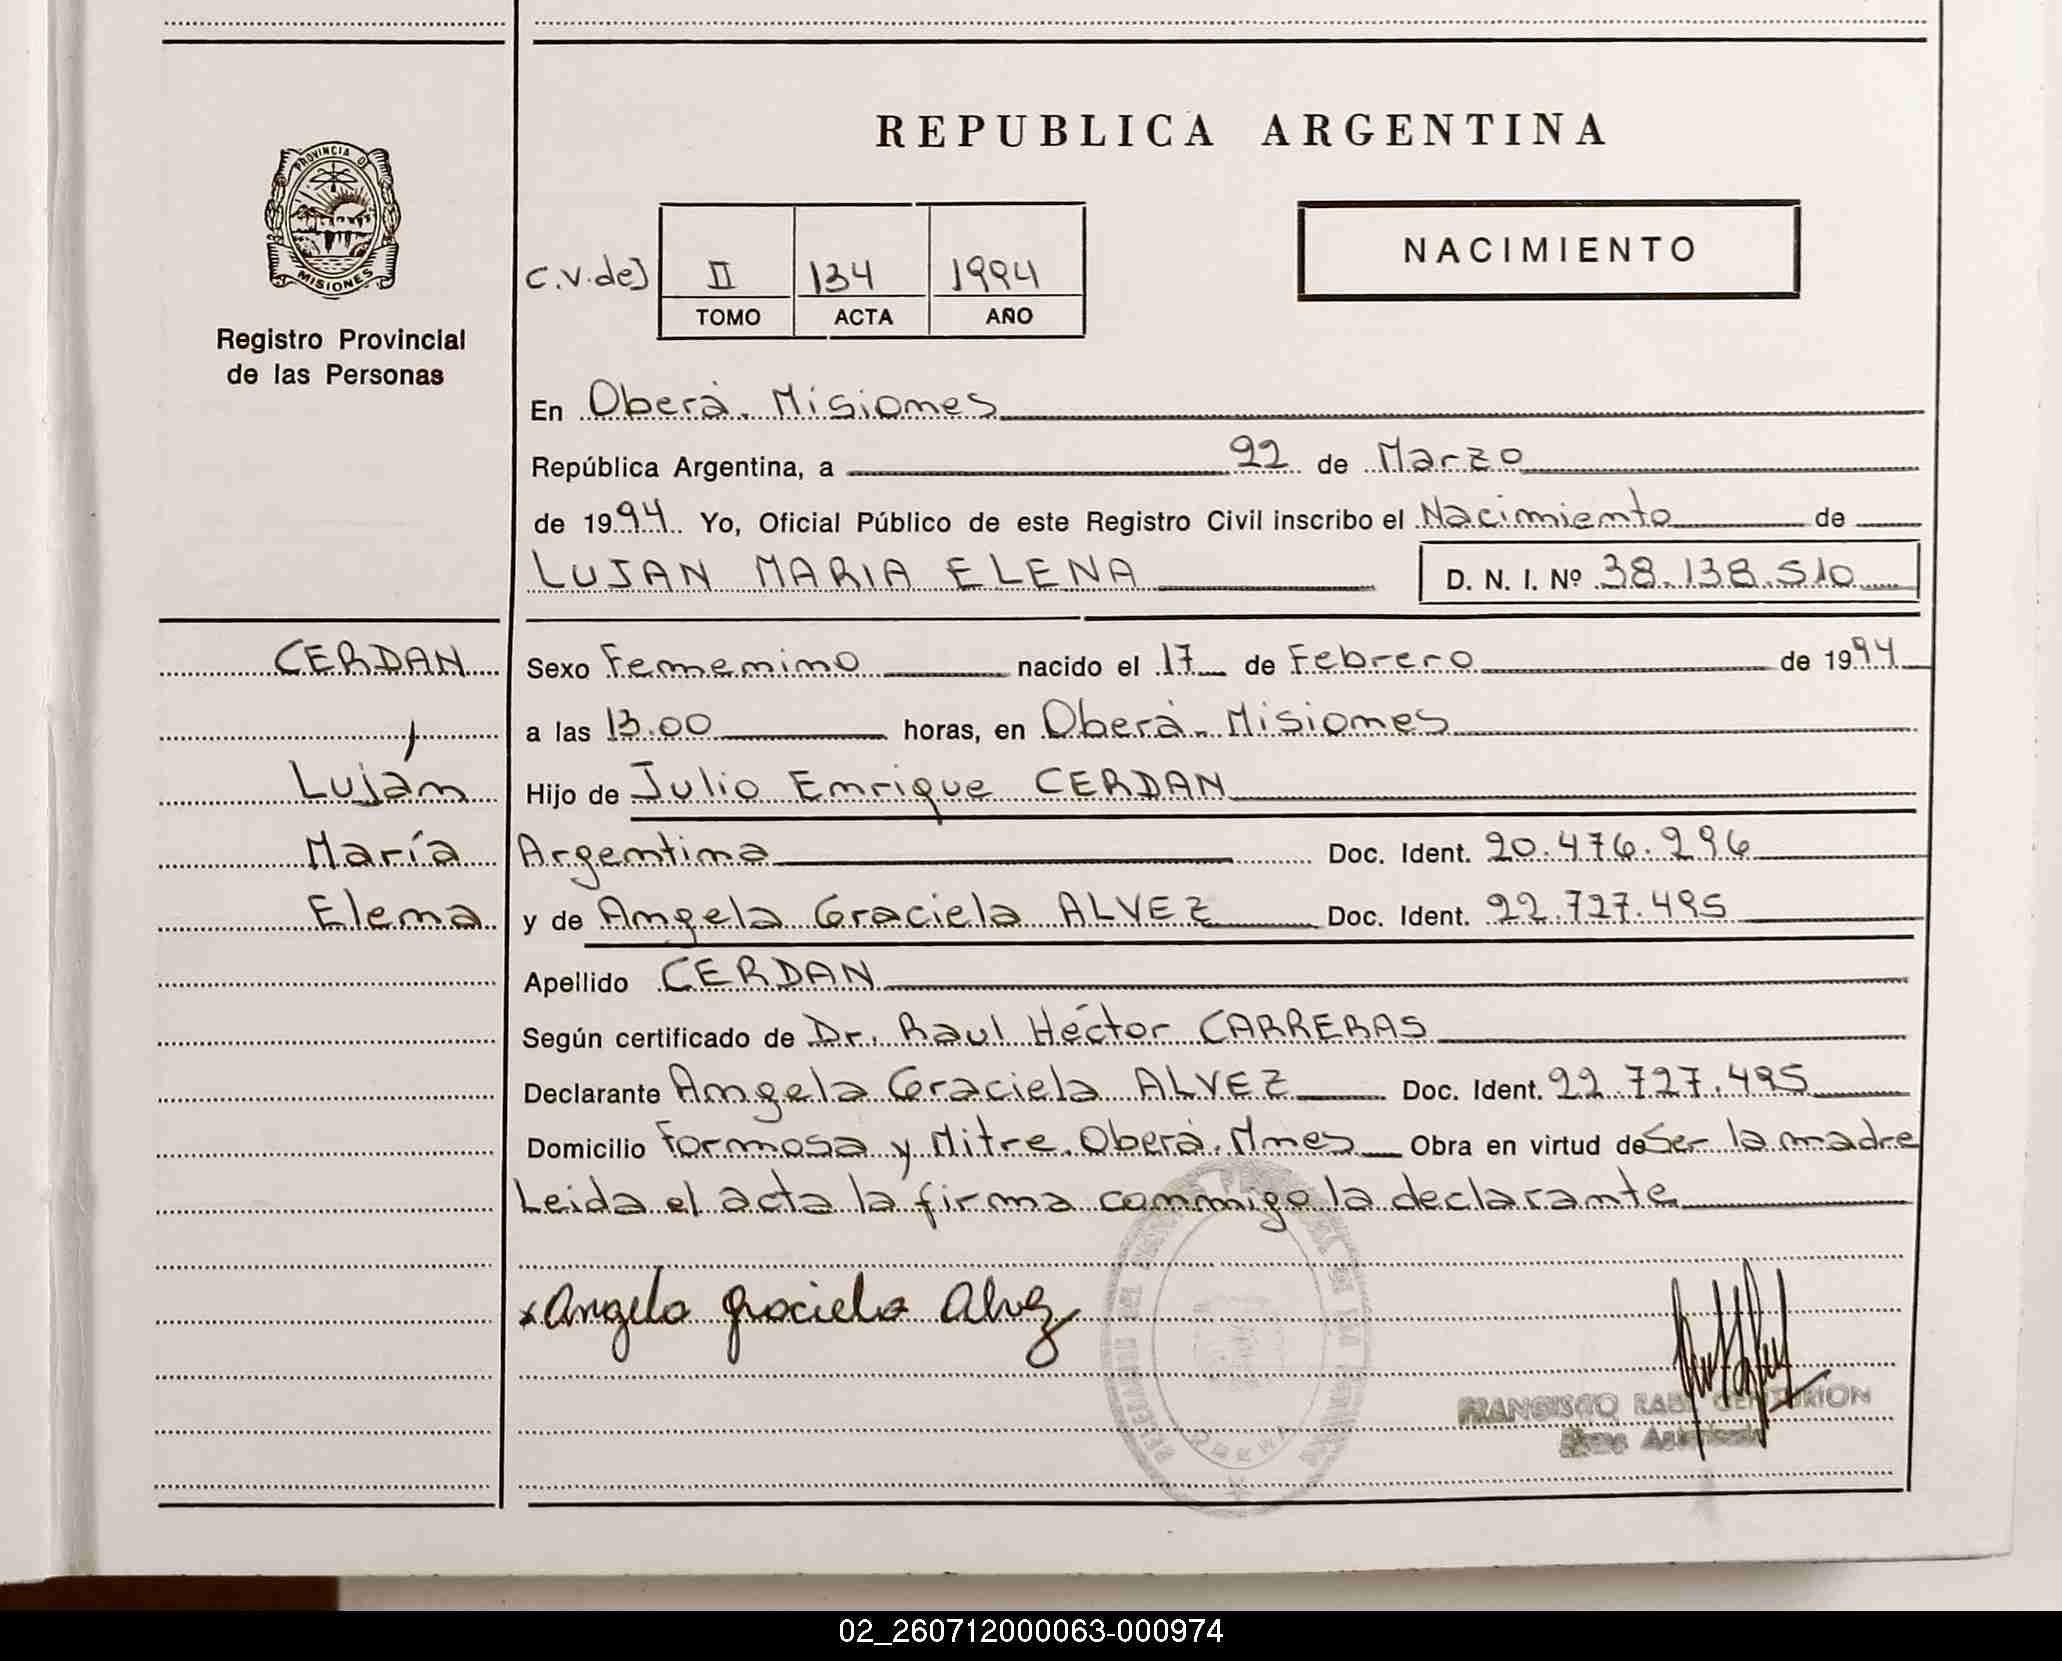 REPUBLICA ARGENTINA
PROVINCIA DE
MISIONES
Registro Provincial
de las Personas
NACIMIENTO
C.V.de J
II 134 1994
TOMO ACTA AÑO
En Oberá. Misiones
República Argentina, a 22 de Marzo
de 1994. Yo, Oficial Público de este Registro Civil inscribo el Nacimiento de
LUJAN MARIA ELENA D. N. I. Nº 38.138.510
CERDAN
,
Luján
María
Elena
Sexo Femenino nacido el 17 de Febrero de 1994
a las 13.00 horas, en Oberá. Misiones
Hijo de Julio Enrique CERDAN
Argentina Doc. Ident. 20.476.296
y de Angela Graciela ALVEZ Doc. Ident. 22.727.495
Apellido CERDAN
Según certificado de Dr. Raul Héctor CARRERAS
Declarante Angela Graciela ALVEZ Doc. Ident. 22.727.495
Domicilio Formosa y Mitre. Oberá. Mnes Obra en virtud de Ser la madre
Leida el acta la firma conmigo la declarante
x Angela Graciela Alvez
FRANCISCO CENTURION
02_260712000063-000974